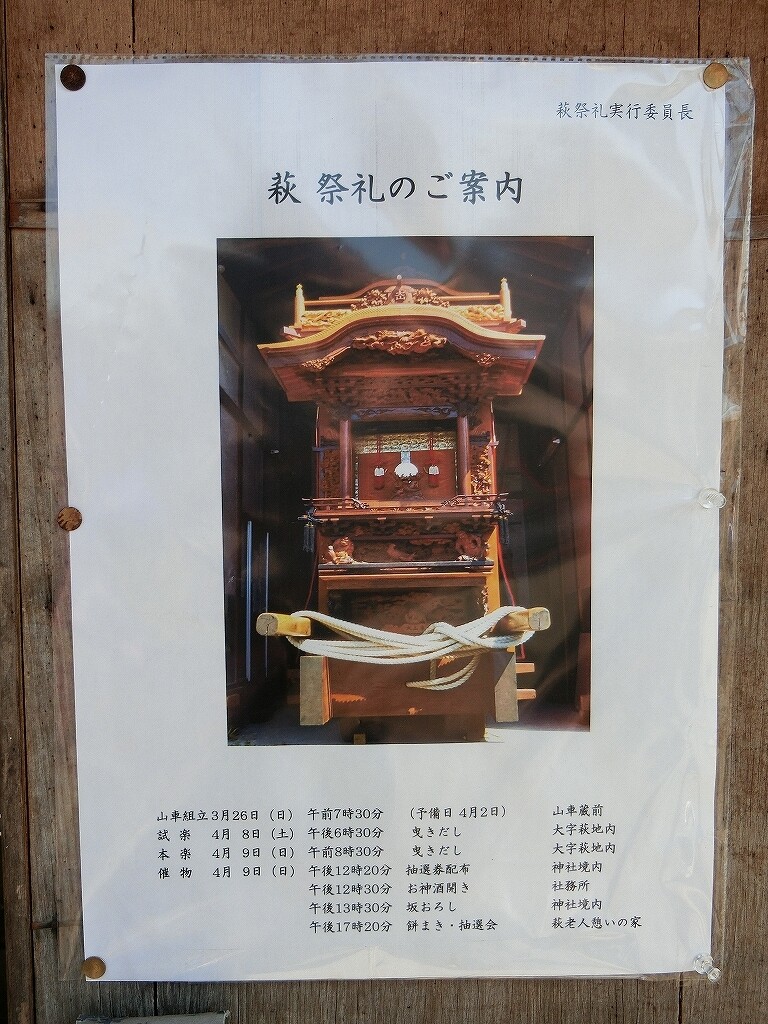 萩祭礼実行委員長
萩 祭礼のご案内
山車組立 3月26日(日) 午前7時30分 (予備日 4月2日) 山車蔵前
試楽 4月 8日(土) 午後6時30分 曳きだし 大字萩地内
本楽 4月 9日(日) 午前8時30分 曳きだし 大字萩地内
催物 4月 9日(日) 午後12時20分 抽選券配布 神社境内
午後12時30分 お神酒開き 社務所
午後13時30分 坂おろし 神社境内
午後17時20分 餅まき・抽選会 萩老人憩いの家